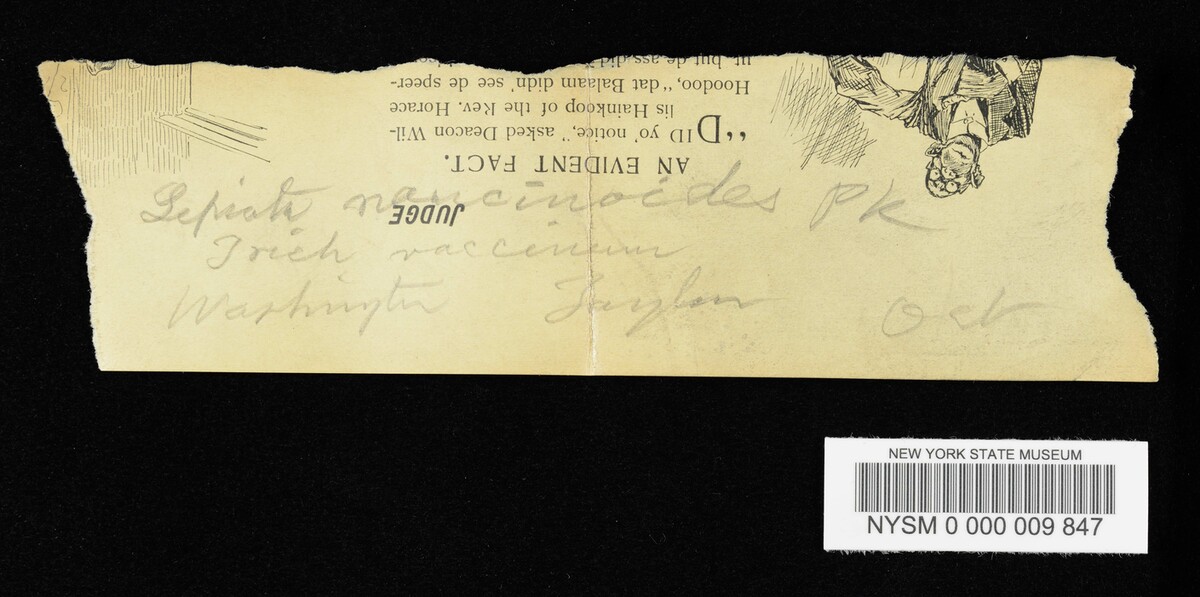 ut but de ass did
Hoodoo, "dat Balaam didn' see de speer-
lis Hainkoop of the Rev. Horace
"DID yo' notice," asked Deacon Wil-
AN EVIDENT FACT.
JUDGE
Lepiota naucinoides Pk
Trich vaccinum
Washington Taylor Oct
NEW YORK STATE MUSEUM
NYSM 0 000 009 847